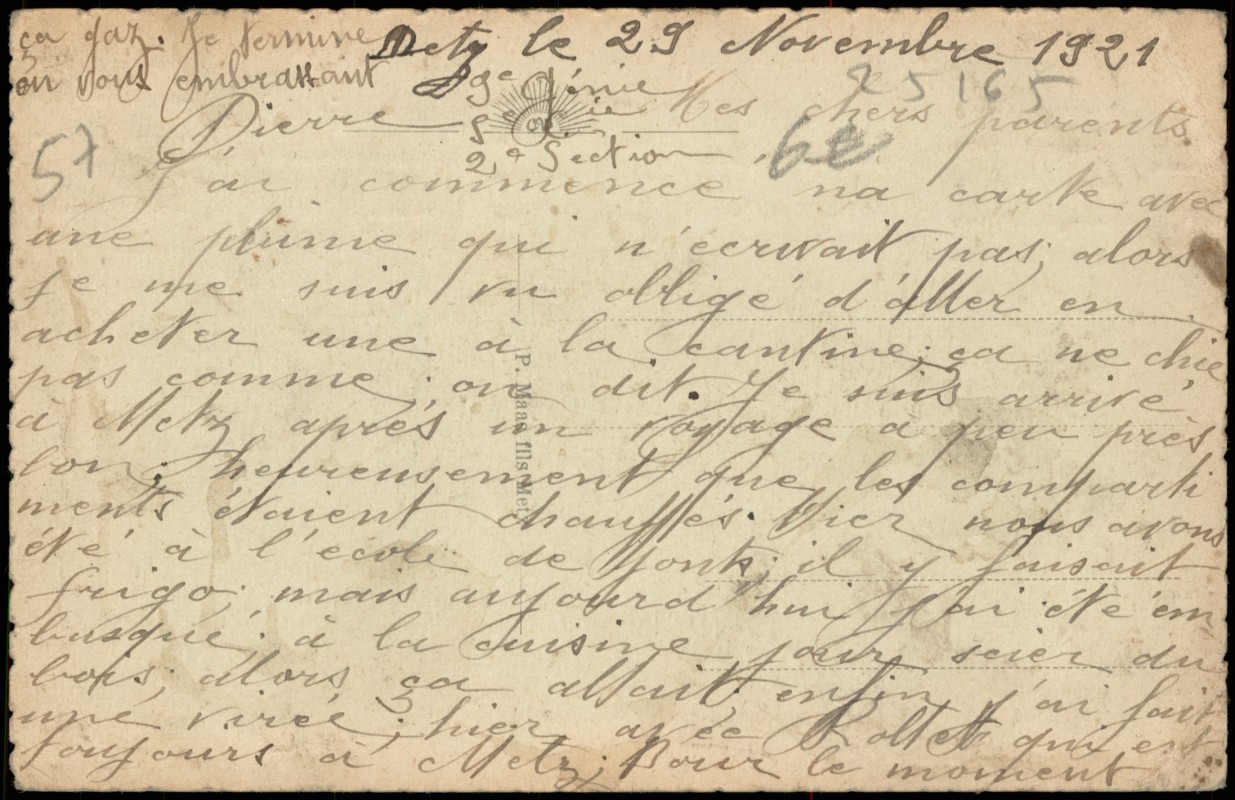 Metz le 29 Novembre 1921
25165
Mes chers parents.
57
6e
J'ai commencé ma carte avec
une plume qui n'écrivait pas; alors
je me suis vu obligé d'aller en
acheter une à la cantine; ça ne chie
pas comme on dit. Je suis arrivé
à Metz après un voyage à peu près
bon; heureusement que les comparti
ments étaient chauffés. Hier nous avons
été à l'école de ponts; il y faisait
frigo; mais aujourd'hui j'ai été em
busqué à la cuisine pour scier du
bois; alors ça allait; enfin j'ai fait
une virée; hier avec qui est
toujours à Metz; Pour le moment
ça gaz. Je termine
en vous embrassant
Pierre
9e Génie
2e Section
P. Maas fils Metz